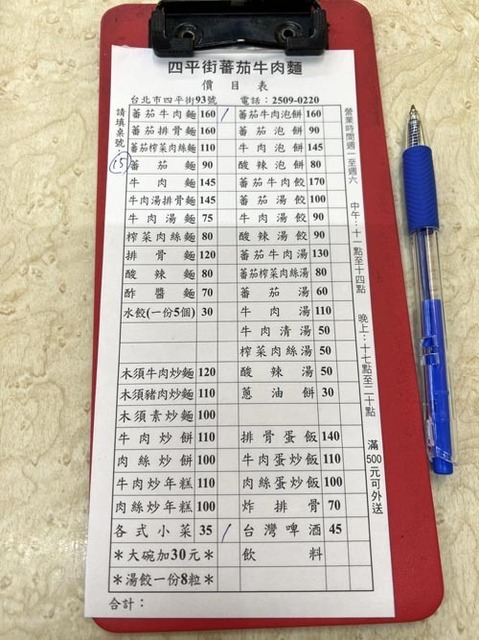 四平街蕃茄牛肉麵
價目表
台北市四平街93號 電話：2509-0220
請填桌號：
15
蕃茄牛肉麵 160 / 蕃茄牛肉泡餅 160
蕃茄排骨麵 160 蕃茄泡餅 90
蕃茄榨菜肉絲麵 110 牛肉泡餅 145
蕃茄麵 90 酸辣泡餅 80
牛肉麵 145 蕃茄牛肉餃 170
牛肉湯排骨麵 145 蕃茄湯餃 100
牛肉湯麵 75 牛肉湯餃 90
榨菜肉絲麵 80 酸辣湯餃 90
排骨麵 120 蕃茄牛肉湯 130
酸辣麵 80 蕃茄榨菜肉絲湯 80
酢醬麵 70 蕃茄湯 60
水餃(一份5個) 30 牛肉湯 110
牛肉清湯 50
榨菜肉絲湯 50
木須牛肉炒麵 120 酸辣湯 50
木須豬肉炒麵 110 蔥油餅 30
木須素炒麵 100
牛肉炒餅 110 排骨蛋飯 140
肉絲炒餅 100 牛肉蛋炒飯 110
牛肉炒年糕 110 肉絲蛋炒飯 100
肉絲炒年糕 100 炸排骨 70
各式小菜 35 / 台灣啤酒 45
＊大碗加30元＊ 飲料
＊湯餃一份8粒＊
合計：
營業時間週一至週六 中午：十一點至十四點 晚上：十七點至二十點
滿500元可外送